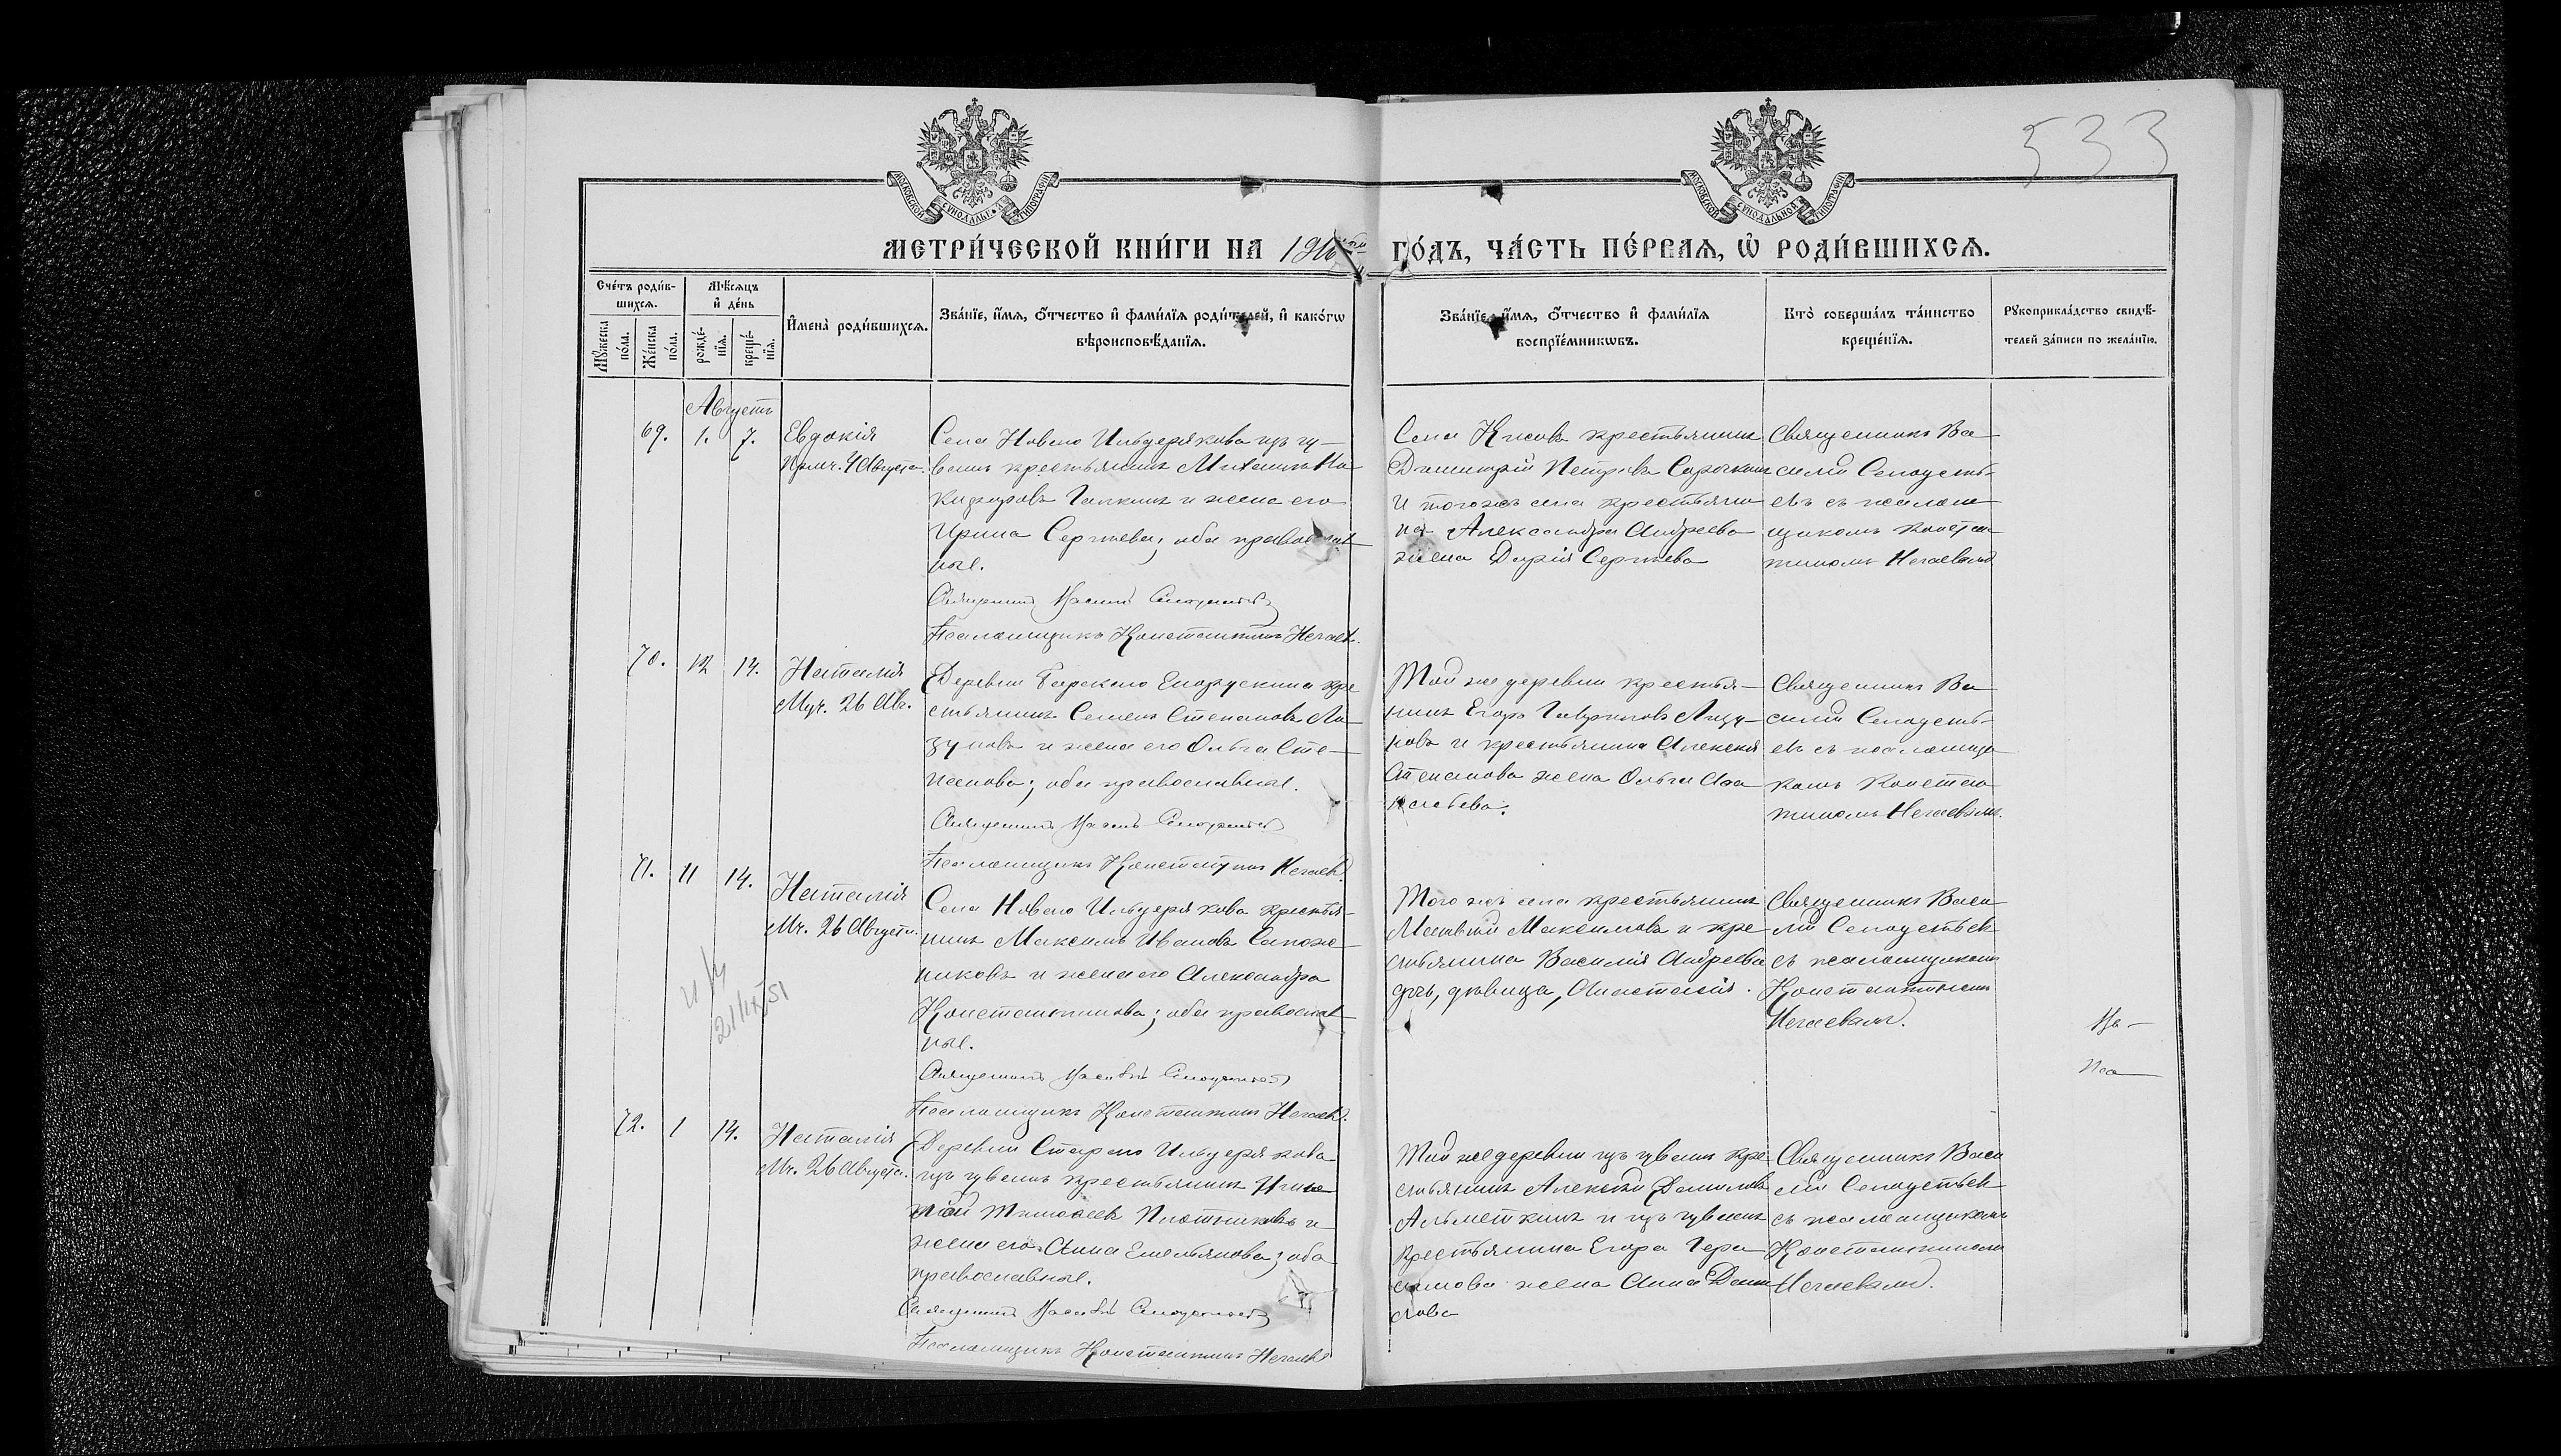 533
МОСКОВСКОЙ СѴНОДАЛЬНОЙ ТИПОГРАФІИ
МОСКОВСКОЙ СѴНОДАЛЬНОЙ ТИПОГРАФІИ
МЕТРИ́ЧЕСКОЙ КНИ́ГИ НА 1916 ГО́ДЪ, ЧА́СТЬ ПЕ́РВАЯ, Ѡ҆ РОДИ́ВШИХСѦ.
Сче́тъ роди́в-
шихсѧ.
Мꙋ́жеска
по́ла.
Же́нска
по́ла.
Мѣ́сѧцъ
и҆ де́нь
рожде́-
нїѧ.
креще́-
нїѧ.
И҆мена̀ роди́вшихсѧ.
Зва́нїе, и҆́мѧ, ѻ҆́тчество и҆ фами́лїѧ роди́телей, и҆ како́гѡ
вѣроисповѣ́данїѧ.
Зва́нїе, и҆́мѧ, ѻ҆́тчество и҆ фами́лїѧ
воспрїе́мникѡвъ.
Кто̀ соверша́лъ та́инство
креще́нїѧ.
Рꙋкоприкла́дство свидѣ́-
телей за́писи по жела́нїю.
Августъ
69. 1. 7.
Евдокія
4 Августа.
Села Новаго Ильдерякова изъ чу-
вашъ крестьянинъ Михаилъ Ни
Галкинъ и жена его
Ирина Сергѣева; оба православ
ные.
Священникъ Василій
Псаломщикъ Константинъ Нечаевъ.
Села крестьянинъ
Димитрій Петровъ Сорокинъ
и тогожъ села крестьяни
на Александра Андреева
жена Дарія Сергѣева
Священникъ Ва
силій
евъ съ псалом
щикомъ Констан
тиномъ Нечаевымъ
70. 12 14.
Наталія
Муч. 26 Авг.
Деревни кре
стьянинъ Семенъ Степановъ Ла
зуновъ и жена его Ольга Сте-
панова; оба православные.
Священникъ Василій
Псаломщикъ Константинъ Нечаевъ.
Той же деревни крестья-
нинъ Егоръ Гавриловъ Лазу-
новъ и крестьянина Алексѣя
Степанова жена Ольга
Священникъ Ва
силій
евъ съ псаломщи
комъ Констан
тиномъ Нечаевымъ.
71. 11 14.
Наталія
Мч. 26 Августа.
21/IX 51
Села Новаго Ильдерякова крестья-
нинъ Максимъ Ивановъ Сапож-
никовъ и жена его Александра
Константинова; оба православ
ные.
Священникъ Василій
Псаломщикъ Константинъ Нечаевъ.
Того жъ села крестьянинъ
Матвѣй Максимовъ и кре
стьянина Василія Андреева
дочь, дѣвица, Анастасія.
Священникъ Васи
лій
съ псаломщикомъ
Константиномъ
Нечаевымъ.
72. 1 14.
Наталія
Мч. 26 Августа.
Деревни Стараго Ильдерякова
изъ чувашъ крестьянинъ
Тимофеевъ Плотниковъ и
жена его Анна Емельянова; оба
православные.
Священникъ Василій
Псаломщикъ Константинъ Нечаевъ
Той же деревни изъ чувашъ кре
стьянинъ Алексѣй Даниловъ
Альметкинъ и изъ чувашъ
крестьянина Егора Гера
симова жена Анна Дани
лова
Священникъ Васи
лій
съ псаломщикомъ
Константиномъ
Нечаевымъ.